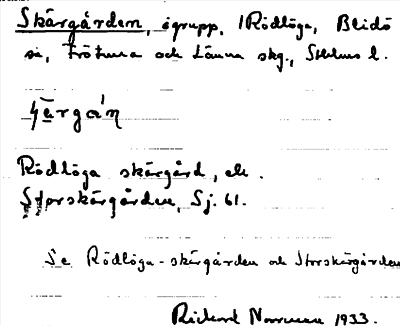 Skärgården, ögrupp, i Rödlöga, Blidö
sn, Frötuna och Länna skg., Sthlms l.
Rödlöga skärgård, el.
Storskärgården, Sj. 61.
Se Rödlöga-skärgården och Storskärgården
Rickard Norrman 1933.